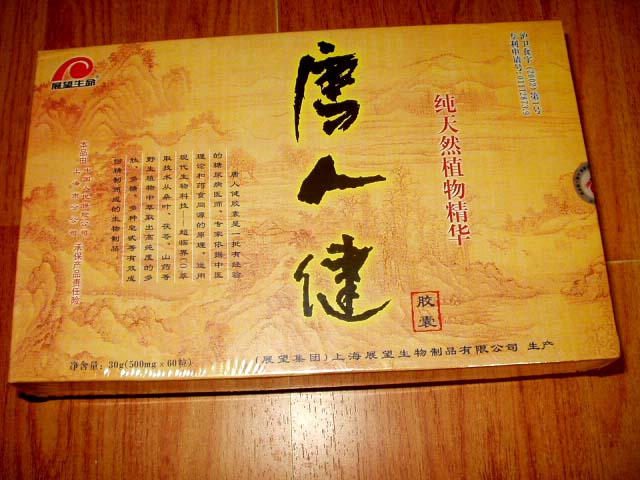 展望生命
唐人健
胶囊
纯天然植物精华
沪卫食字(2002)第1号
专利申请号:01112676.9
唐人健胶囊是一批有经验
的糖尿病医师、专家依据中医
理论和药食同源的原理,运用
现代生物科技——超临界CO2萃
取技术从桑叶、茯苓、山药等
野生植物中萃取出高纯度的多
肽、多糖、多种皂甙等有效成
份精制而成的生物制品
本品由中国人民保险公司
上海市分公司 承保产品责任险
净含量:30g(500mg x 60粒)
(展望集团)上海展望生物制品有限公司 生产